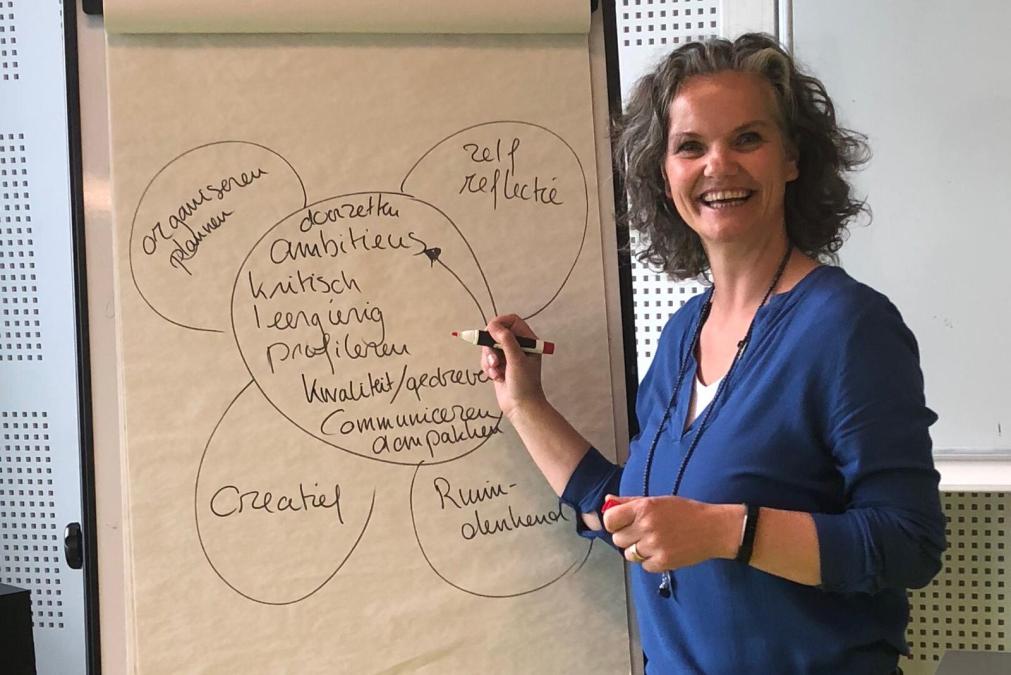 organiseren
plannen
zelf
reflectie
doorzetten
ambitieus
kritisch
leergierig
profileren
kwaliteit/gedreven
Communiceren
aanpakken
Creatief
Ruim-
denkend